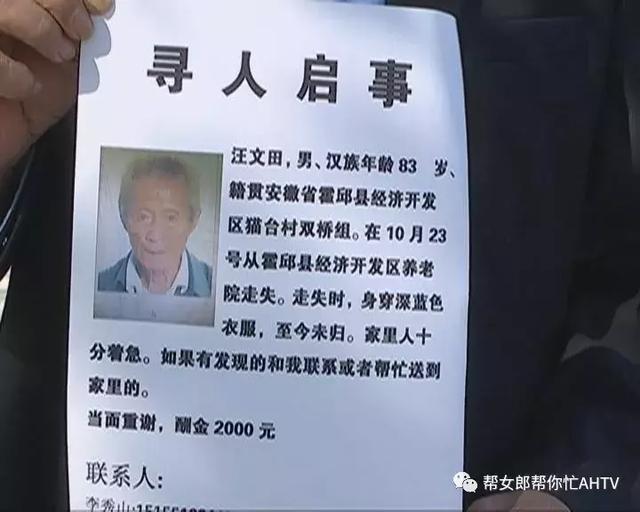 寻人启事
汪文田，男、汉族年龄 83 岁、
籍贯安徽省霍邱县经济开发
区猫台村双桥组。在 10 月 23
号从霍邱县经济开发区养老
院走失。走失时，身穿深蓝色
衣服，至今未归。家里人十
分着急。如果有发现的和我联系或者帮忙送到
家里的。
当面重谢，酬金 2000 元
联系人：
李秀山:
帮女郎帮你忙AHTV